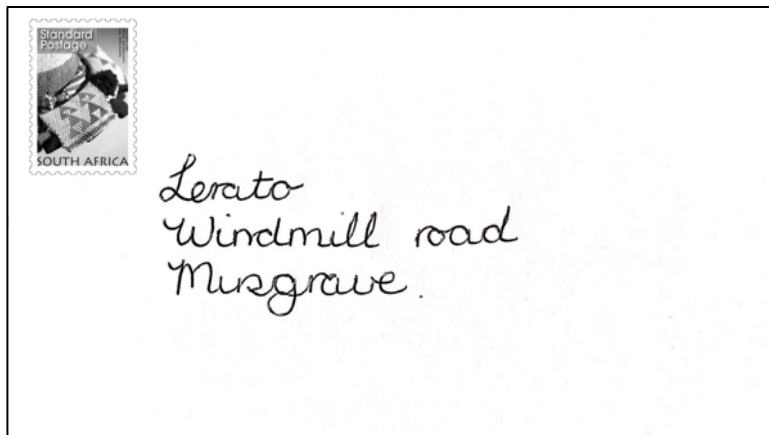 Standard
Postage
SOUTH AFRICA
Lerato
Windmill road
Musgrave.